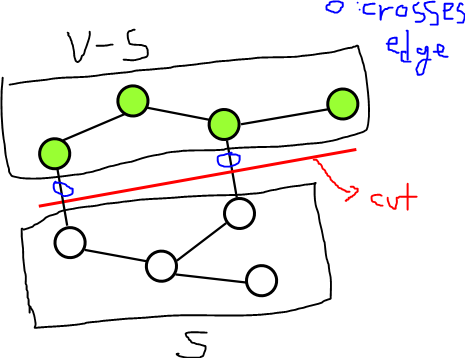 o : crosses
edge
V-S
cut
S